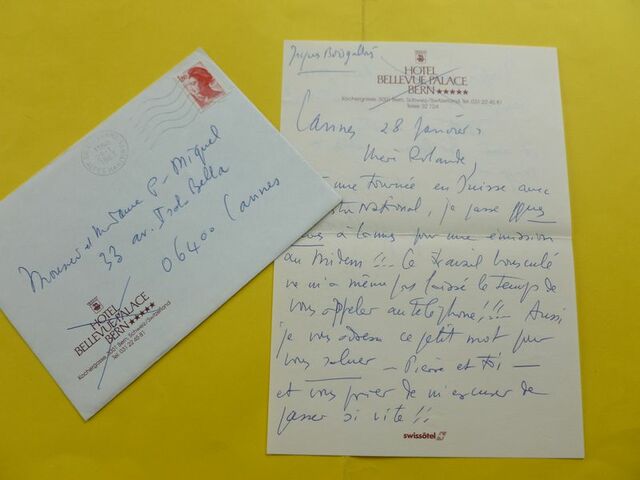 Monsieur et Madame P. Miquel
33 av. Isola Bella
06400 Cannes
HOTEL
BELLEVUE PALACE
BERN ★★★★★
Kochergasse, 3001 Bern, Suisse/Switzerland
Tel. 031 22 45 81
Jacques
HOTEL
BELLEVUE PALACE
BERN ★★★★★
Kochergasse, 3001 Bern, Suisse/Switzerland, Tel. 031 22 45 81
Telex 32 124
Cannes 28 Janvier
Chère Rolande,
une tournée en Suisse avec
National, je passe qques
à Cannes pour une émission
au Midem !!! Ce travail bousculé
ne m'a même pas laissé le temps de
vous appeler au téléphone !!! Aussi
je vous adresse ce petit mot pour
vous saluer – Pierre et toi –
et vous prier de m'excuser de
passer si vite !!
swissôtel